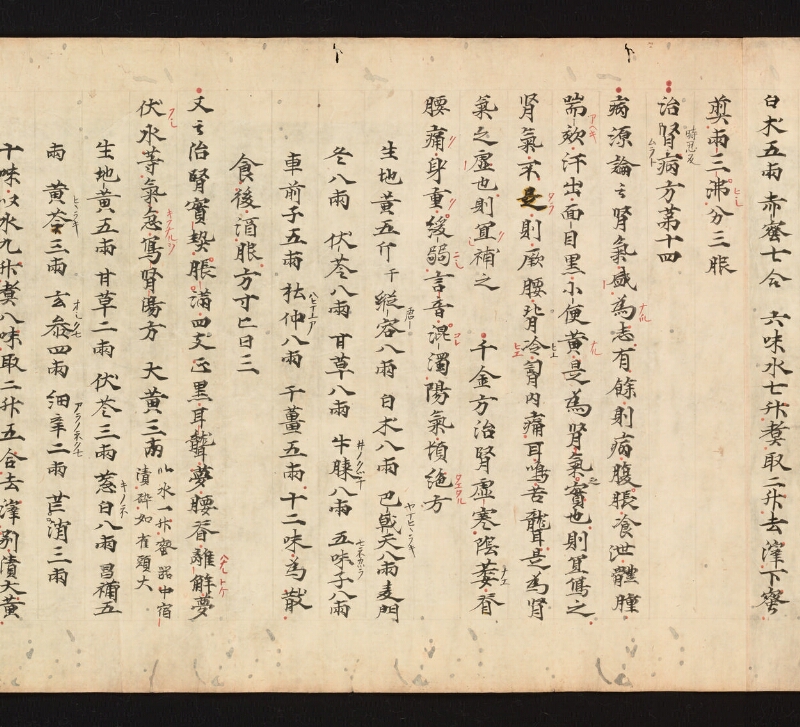 白朮五兩 赤蜜七合 六味水七升煮取二升去滓下蜜
煎兩三沸分三服
治腎病方第十四
病源論云腎氣盛為志有餘則病腹脹飧泄體腫
喘欬汗出面目黑小便黃是為腎氣之實也則宜寫之
腎氣不足則厥腰背冷胷內痛耳鳴苦聾是為腎
氣之虛也則宜補之 千金方治腎虛寒陰萎脊
腰痛身重緩弱言音混濁陽氣頓絕方
生地黃五斤干 縱容八兩 白朮八兩 巴戟天八兩 麦門
冬八兩 伏苓八兩 甘草八兩 牛膝八兩 五味子八兩
車前子五兩 杜仲八兩 干薑五兩 十二味為散
食後酒服方寸匕日三
又云治腎實熱脹滿四支正黑耳聾夢腰脊離解夢
伏水等氣急寫腎湯方 大黃三兩 以水一升蜜器中宿漬碎如雀頭大
生地黃五兩 甘草二兩 伏苓三兩 葱白八兩 昌補五
兩 黃芩三兩 玄參四兩 細辛二兩 芒消三兩
十味以水九升煮八味取二升五合去滓別漬大黃